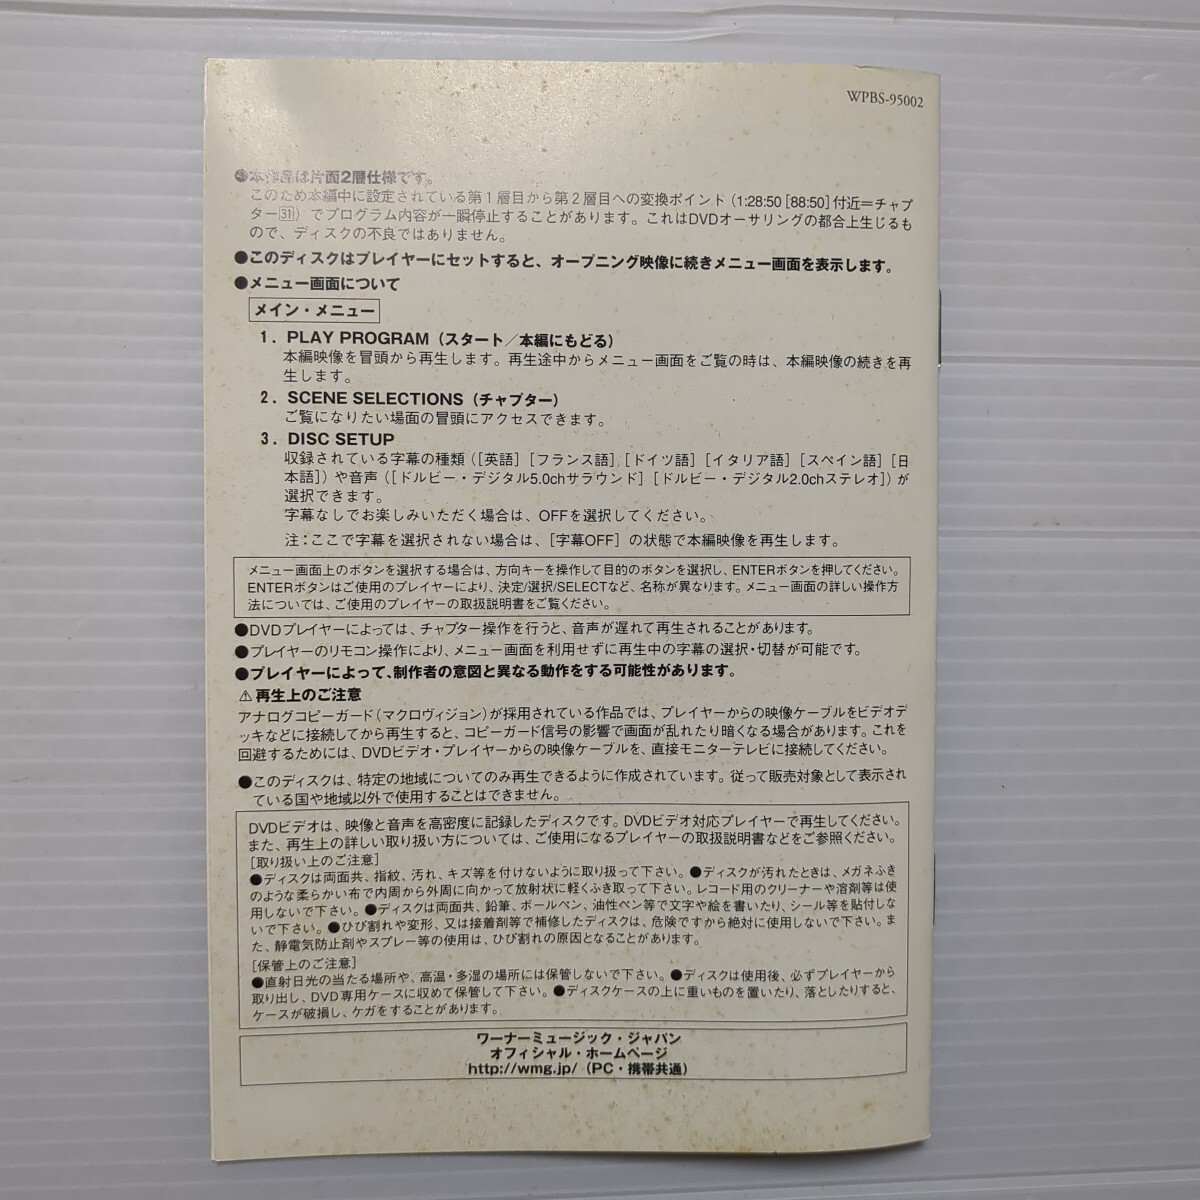 WPBS-95002
●本作品は片面2層仕様です。
このため本編中に設定されている第1層目から第2層目への変換ポイント(1:28:50[88:50]付近=チャプ
ター31)でプログラム内容が一瞬停止することがあります。これはDVDオーサリングの都合上生じるも
ので、ディスクの不良ではありません。
●このディスクはプレイヤーにセットすると、オープニング映像に続きメニュー画面を表示します。
●メニュー画面について
メイン・メニュー
1. PLAY PROGRAM(スタート/本編にもどる)
本編映像を冒頭から再生します。再生途中からメニュー画面をご覧の時は、本編映像の続きを再
生します。
2. SCENE SELECTIONS(チャプター)
ご覧になりたい場面の冒頭にアクセスできます。
3. DISC SETUP
収録されている字幕の種類([英語][フランス語][ドイツ語][イタリア語][スペイン語][日
本語])や音声([ドルビー・デジタル5.0chサラウンド][ドルビー・デジタル2.0chステレオ])が
選択できます。
字幕なしでお楽しみいただく場合は、OFFを選択してください。
注:ここで字幕を選択されない場合は、[字幕OFF]の状態で本編映像を再生します。
メニュー画面上のボタンを選択する場合は、方向キーを操作して目的のボタンを選択し、ENTERボタンを押してください。
ENTERボタンはご使用のプレイヤーにより、決定/選択/SELECTなど、名称が異なります。メニュー画面の詳しい操作方
法については、ご使用のプレイヤーの取扱説明書をご覧ください。
●DVDプレイヤーによっては、チャプター操作を行うと、音声が遅れて再生されることがあります。
●プレイヤーのリモコン操作により、メニュー画面を利用せずに再生中の字幕の選択・切替が可能です。
●プレイヤーによって、制作者の意図と異なる動作をする可能性があります。
⚠再生上のご注意
アナログコピーガード(マクロヴィジョン)が採用されている作品では、プレイヤーからの映像ケーブルをビデオデ
ッキなどに接続してから再生すると、コピーガード信号の影響で画面が乱れたり暗くなる場合があります。これを
回避するためには、DVDビデオ・プレイヤーからの映像ケーブルを、直接モニターテレビに接続してください。
●このディスクは、特定の地域についてのみ再生できるように作成されています。従って販売対象として表示され
ている国や地域以外で使用することはできません。
DVDビデオは、映像と音声を高密度に記録したディスクです。DVDビデオ対応プレイヤーで再生してください。
また、再生上の詳しい取り扱い方については、ご使用になるプレイヤーの取扱説明書などをご参照ください。
[取り扱い上のご注意]
●ディスクは両面共、指紋、汚れ、キズ等を付けないように取り扱って下さい。●ディスクが汚れたときは、メガネふき
のような柔らかい布で内周から外周に向かって放射状に軽くふき取って下さい。レコード用のクリーナーや溶剤等は使
用しないで下さい。●ディスクは両面共、鉛筆、ボールペン、油性ペン等で文字や絵を書いたり、シール等を貼付しな
いで下さい。●ひび割れや変形、又は接着剤等で補修したディスクは、危険ですから絶対に使用しないで下さい。ま
た、静電気防止剤やスプレー等の使用は、ひび割れの原因となることがあります。
[保管上のご注意]
●直射日光の当たる場所や、高温・多湿の場所には保管しないで下さい。●ディスクは使用後、必ずプレイヤーから
取り出し、DVD専用ケースに収めて保管して下さい。●ディスクケースの上に重いものを置いたり、落としたりすると、
ケースが破損し、ケガをすることがあります。
ワーナーミュージック・ジャパン
オフィシャル・ホームページ
http://wmg.jp/(PC・携帯共通)